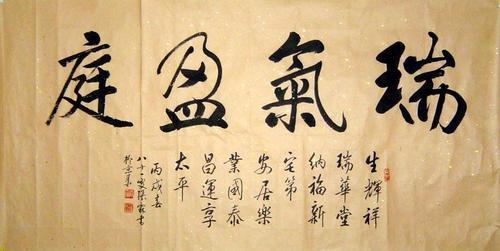 瑞氣盈庭
生輝祥
瑞華堂
納福新
宅第
安居樂
業國泰
昌運享
太平
丙戌春
八十二叟張
於京華